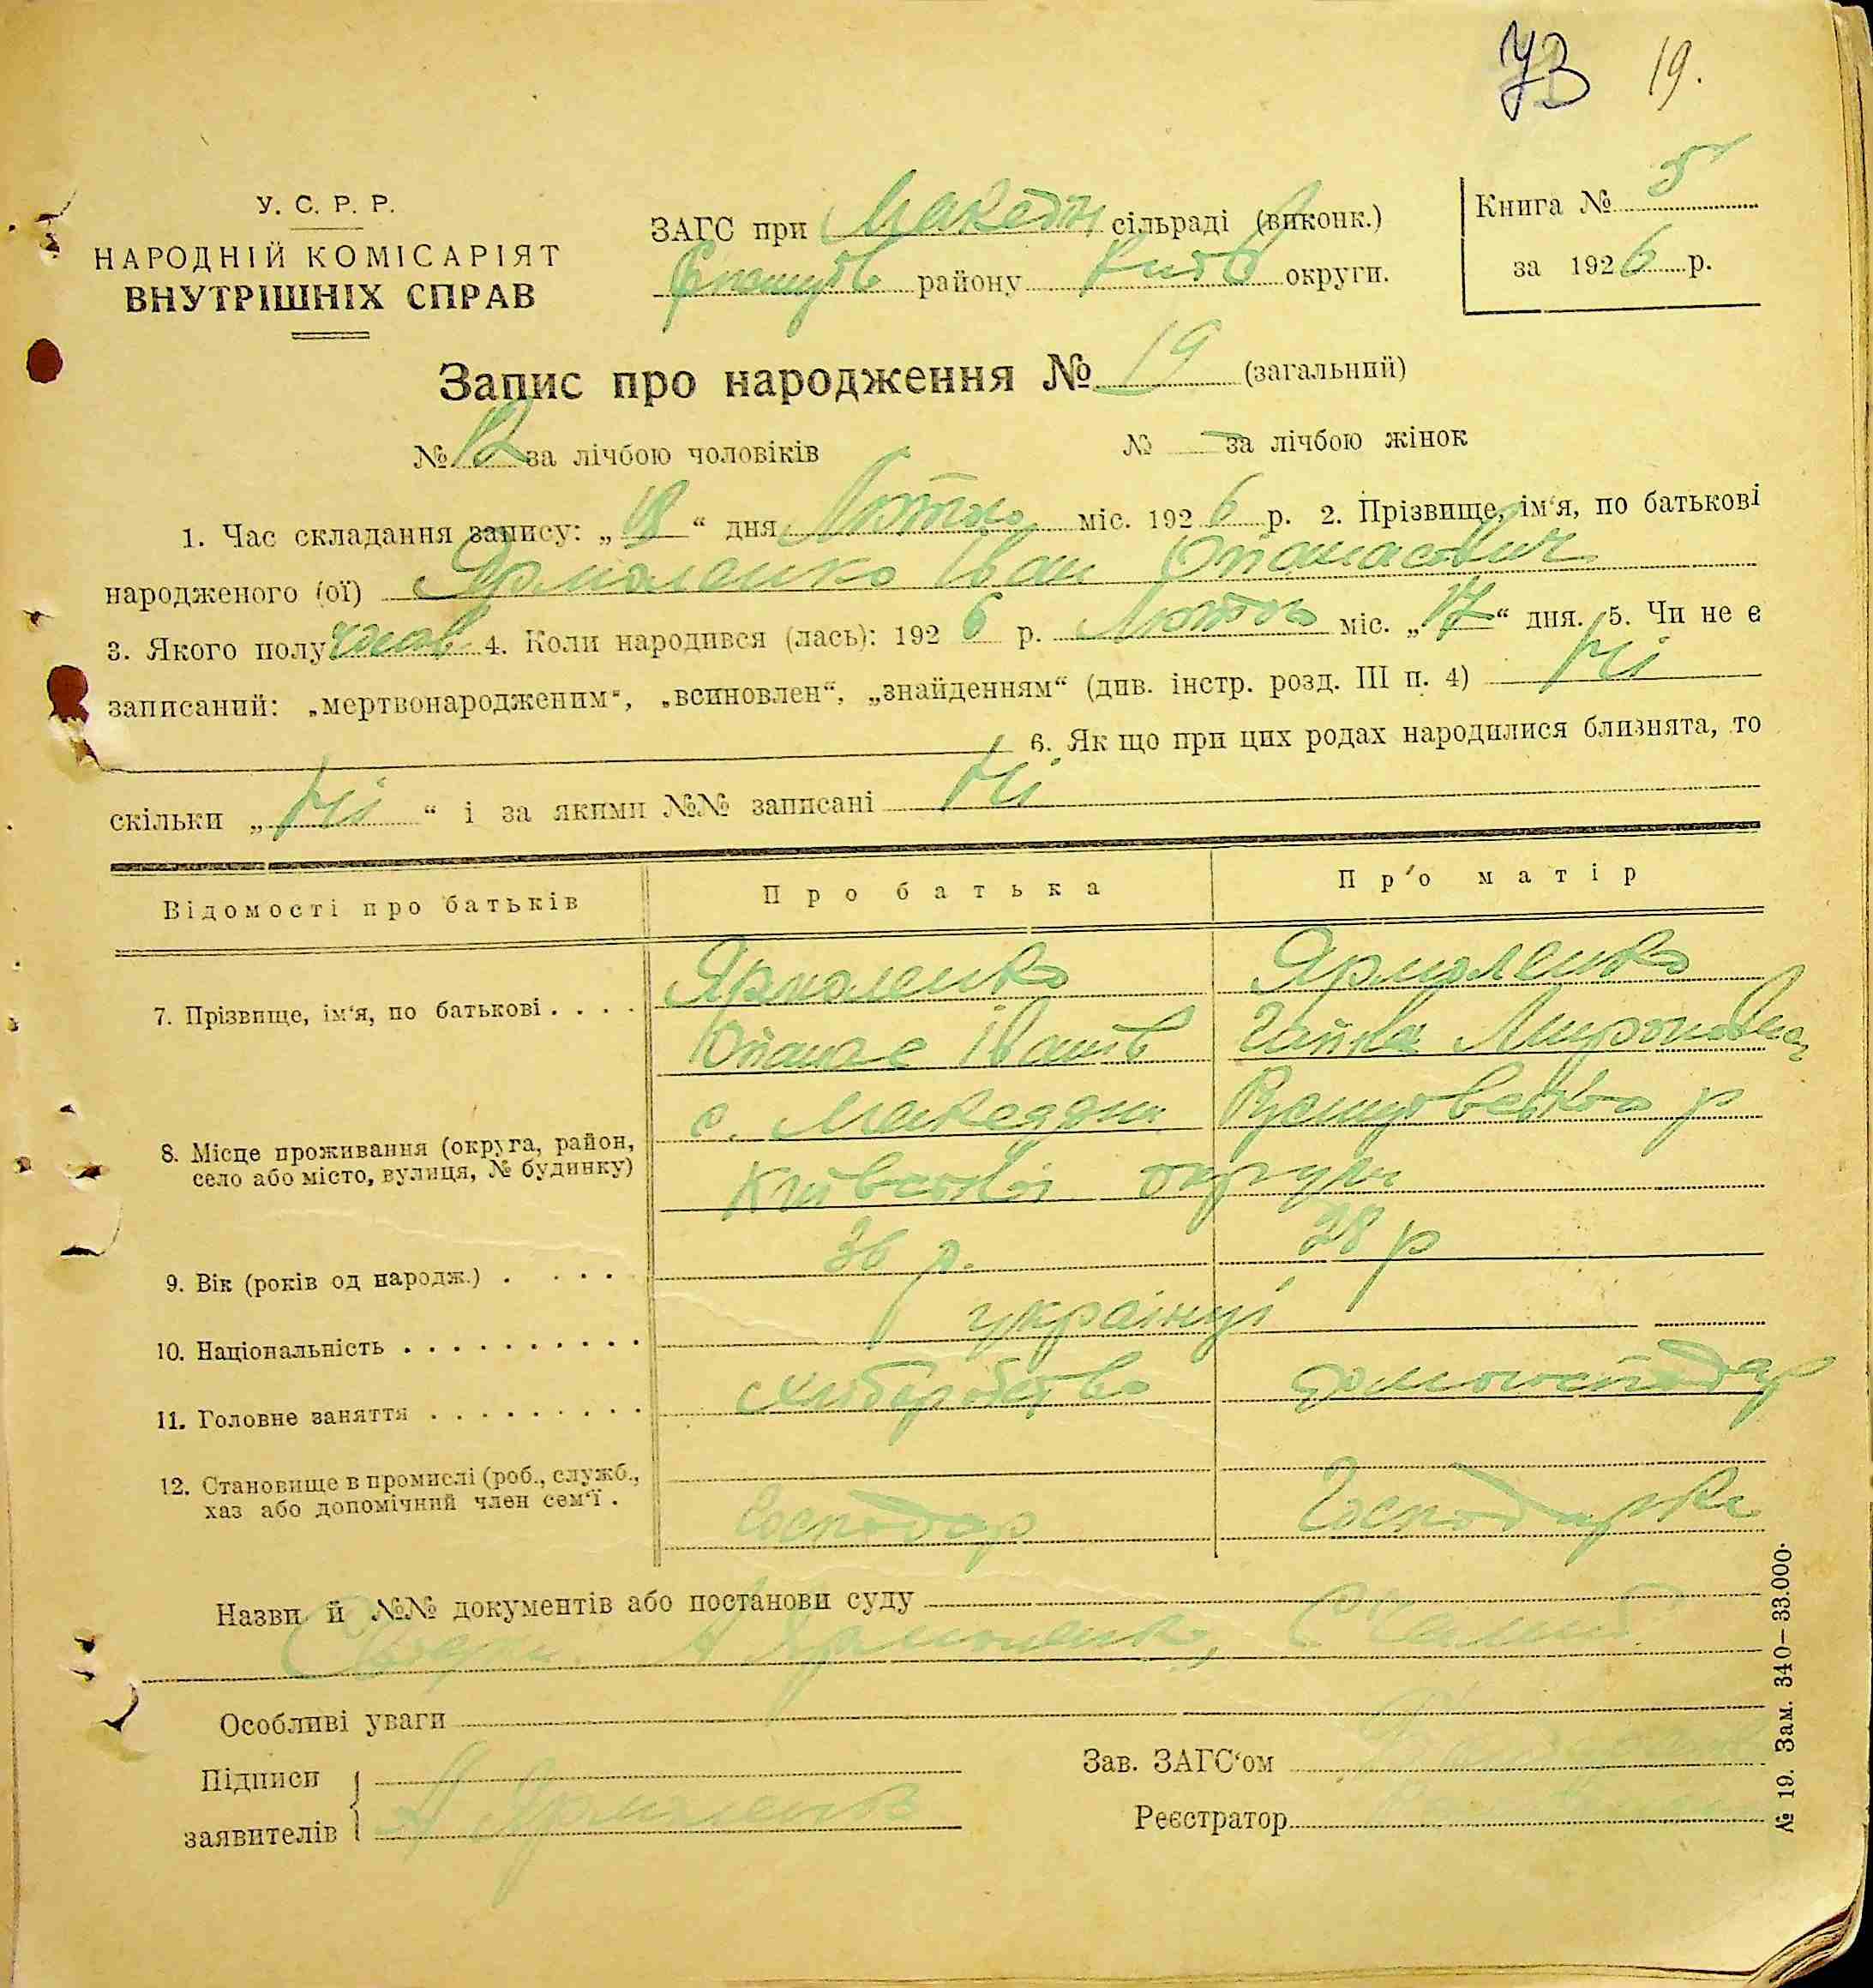 УВ 19.
У. С. Р. Р.
НАРОДНІЙ КОМІСАРІЯТ
ВНУТРІШНІХ СПРАВ
ЗАГС при Македон сільраді (виконк.)
району Київ округи.
Книга № 5
за 1926 р.
Запис про народження № 19 (загальний)
№ 12 за лічбою чоловіків № — за лічбою жінок
1. Час складання запису: „18“ дня Лютого міс. 1926 р. 2. Прізвище, ім'я, по батькові
народженого (ої) Ярмоленко Іван Опанасович
3. Якого полу чолов 4. Коли народився (лась): 1926 р. Лютого міс. „17“ дня. 5. Чи не є
записаний: „мертвонародженим“, „всиновлен“, „знайденням“ (див. інстр. розд. III п. 4) Ні
6. Як що при цих родах народилися близнята, то
скільки „ Ні “ і за якими №№ записані Ні
Відомості про батьків Про батька Про матір
7. Прізвище, ім'я, по батькові . . . . Ярмоленко Ярмоленко
Опанас Іванів Мироновна
8. Місце проживання (округа, район,
село або місто, вулиця, № будинку)
с. Македони р
Київської округи
9. Вік (років од народж.) . . . . 36 р. 28 р
10. Національність . . . . . . . . . . українці
11. Головне заняття . . . . . . . . . хліборобство
12. Становище в промислі (роб., служб.,
хаз або допомічний член сем'ї .
Господар Господарка
Назви й №№ документів або постанови суду
А Ярмоленко,
Особливі уваги
Підписи
заявителів
А Ярмоленко
Зав. ЗАГС'ом
Реєстратор
№ 19. Зам. 340—33.000.